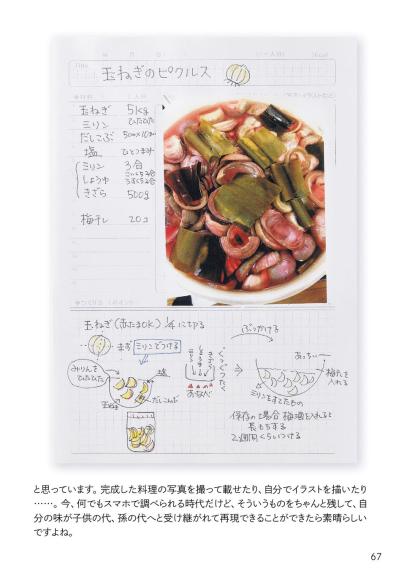 玉ねぎのピクルス
玉ねぎ 5kg
ミリン ひたひた
だしこぶ 5cm×10枚
塩 ひとつまみ
ミリン 3合
しょうゆ こいくち2合 うすくち2合
きざら 500g
梅干し 20コ
玉ねぎ(赤たまOK) 1/4に切る
まず ミリンでつける
みりんをひたひた
塩
玉ねぎ
だしこんぶ
ぐつぐつたく
おなべ
ぶっかける
あっちー
梅干しを入れる
ミリンをすてたもの
保存の場合 梅酒を入れると
長もちする
2週間くらいつける
と思っています。完成した料理の写真を撮って載せたり、自分でイラストを描いたり
……。今、何でもスマホで調べられる時代だけど、そういうものをちゃんと残して、自
分の味が子供の代、孫の代へと受け継がれて再現できることができたら素晴らしい
ですよね。
67